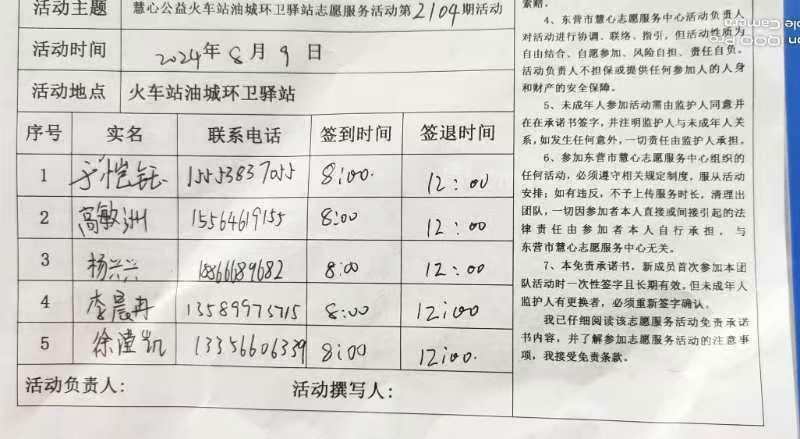 活动主题 慧心公益火车站油城环卫驿站志愿服务活动第2104期活动
活动时间 2024年8月9日
活动地点 火车站油城环卫驿站
序号 实名 联系电话 签到时间 签退时间
1 于恺钰 15553837055 8:00 12:00
2 高敏洲 15564619155 8:00 12:00
3 杨兴兴 18866689682 8:00 12:00
4 李晨冉 13589975715 8:00 12:00
5 徐滢凯 13356606339 8:00 12:00
活动负责人: 活动撰写人:
索赔。
4、东营市慧心志愿服务中心活动负责人
对活动进行协调、联络、指引，但活动性质为
自由结合、自愿参加、风险自担、责任自负。
活动负责人不担保或提供任何参加人的人身
和财产的安全保障。
5、未成年人参加活动需由监护人同意并
在在承诺书签字，并注明监护人与未成年人关
系，如发生任何意外，一切责任由监护人承担。
6、参加东营市慧心志愿服务中心组织的
任何活动，必须遵守相关规定制度，服从活动
安排；如有违反，不予上传服务时长，清理出
团队，一切因参加者本人直接或间接引起的法
律责任由参加者本人自行承担，与
东营市慧心志愿服务中心无关。
7、本免责承诺书，新成员首次参加本团
队活动时一次性签字且长期有效，但未成年人
监护人有更换者，必须重新签字确认。
我已仔细阅读该志愿服务活动免责承诺
书内容，并了解参加志愿服务活动的注意事
项，我接受免责条款。